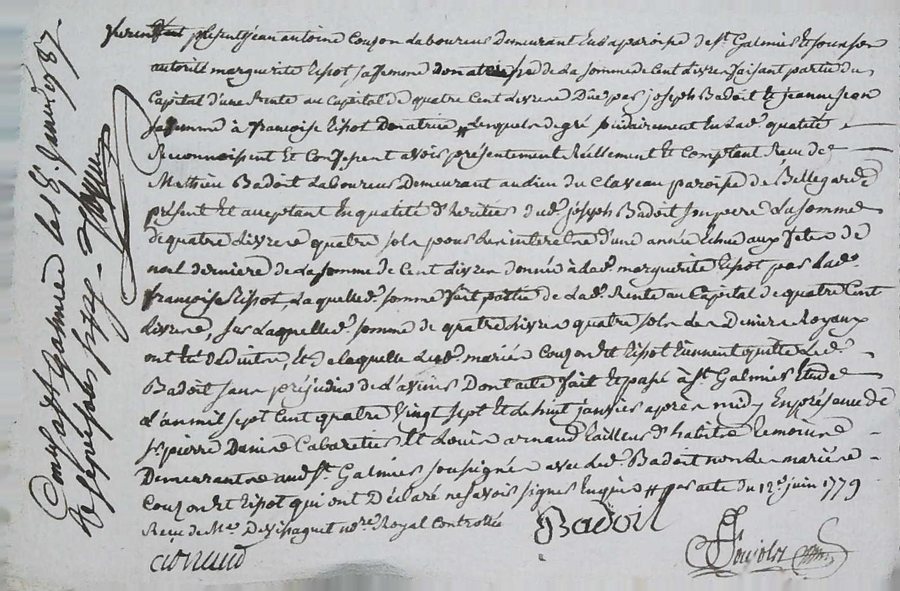 furent présent jean antoine Couzon Laboureur Demeurant En La paroisse de st. Galmier Et de son
autorité marguerite Tissot, sa femme donatrice de La somme de Cent Livres faisant partie du
Capital d'une Rente au Capital de quatre Cent Livres Düe par joseph Badoit Et jeanne jean
sa femme à françoise Tissot Donatrice # Lesquels de gré solidairement En Lad. qualité
Reconnoissent Et Confessent avoir présentement Réellement Et Comptant Reçu de
Mathieu Badoit Laboureur Demeurant au Lieu du Claveau paroisse de Bellegarde
présent Et acceptant En qualité d'heritier dud. joseph Badoit son pere La somme
de quatre Livres quatre sols pour Les interets d'une année Echue aux fetes de
noel dernieres de La somme de Cent Livres donnée à Lad. marguerite Tissot par Lad.
françoise Tissot, Laquelle d. somme fait partie de Lad. Rente au Capital de quatre Cent
Livres, sur Laquelle d. somme de quatre Livres quatre sols Les Deniers Royaux
ont Eté deduits, Et de laquelle Lesd. mariés Couzon Et Tissot tiennent quitte Led.
Badoit sans préjudice de Dont acte fait Et passé à st. Galmier Etude
L'an mil sept Cent quatre Vingt sept Et Le huit janvier après midy En présence de
sr. pierre Cabaretier Et Louis arnaud tailleur d'habits temoins
Demeurants aud. st. Galmier soussignés avec Led. Badoit non Les mariés
Couzon Et Tissot qui ont Déclaré ne savoir signer Enquis # par acte du 12e. juin 1779
Reçu de Me. notre. Royal Controllé
Badoit
arnaud
Conlé à St Galmier Le 8. Janvier 1787
R sols